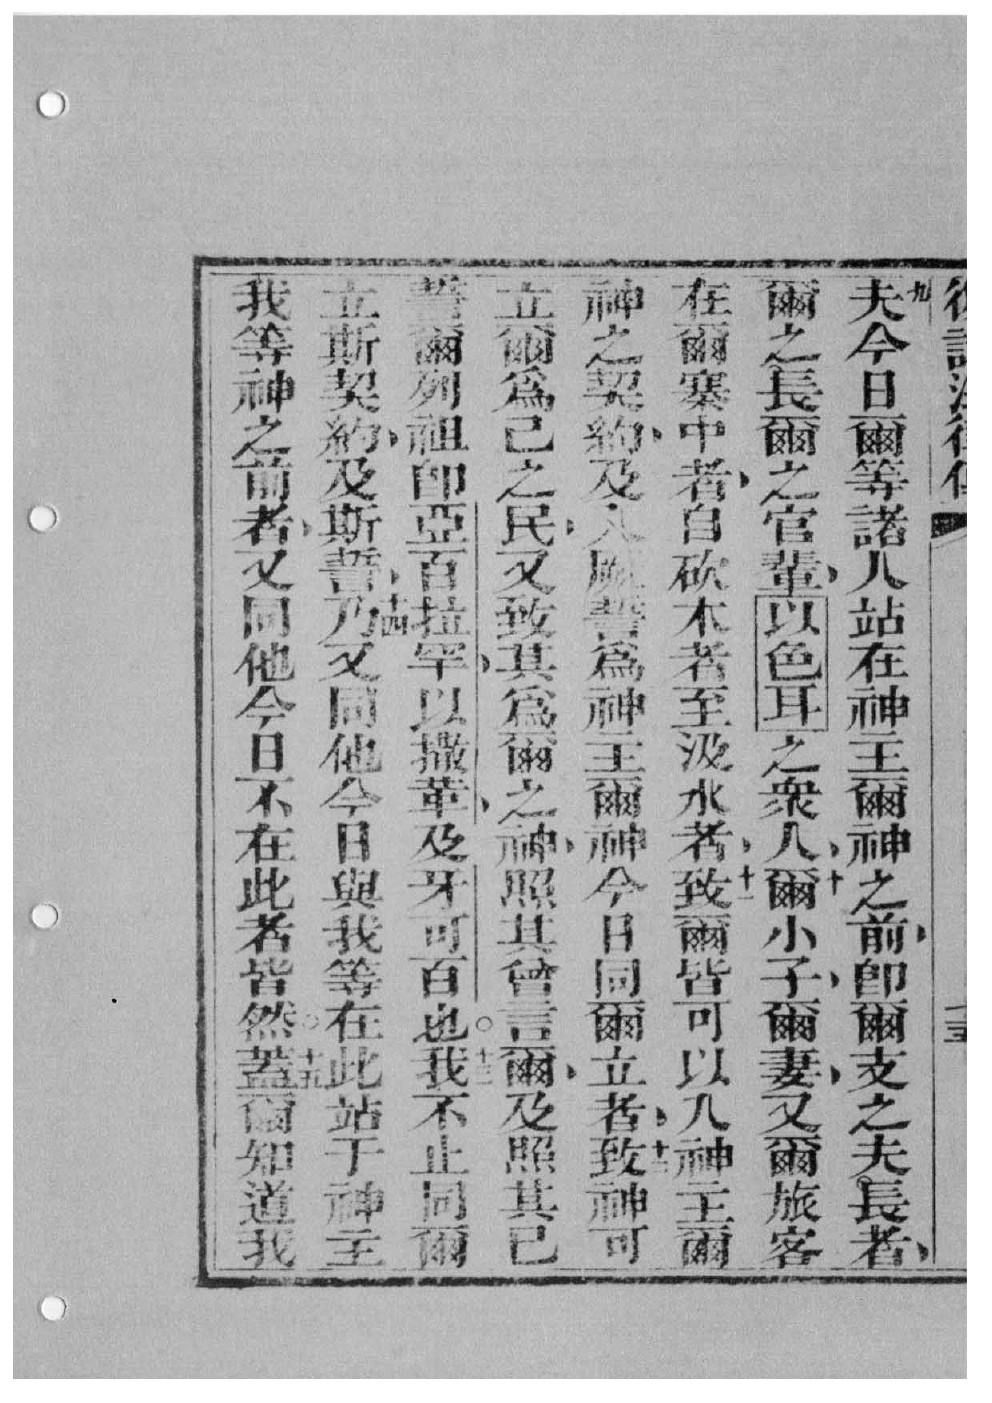 復講法律傳
九夫今日爾等諸人站在神主爾神之前、卽爾支之夫。長者、
爾之長爾之官輩、以色耳之衆人、十爾小子、爾妻、又爾旅客
在爾寨中者、自砍木者至汲水者、十一致爾皆可以入神主爾
神之契約、及入厥誓爲神主爾神今日同爾立者、十二致神可
立爾爲己之民、又致其爲爾之神、照其曾言爾、及照其已
誓爾列祖卽亞百拉罕、以撒革、及牙可百也。十三我不止同爾
立斯契約、及斯誓、十四乃又同他今日與我等在此站于神主
我等神之前者、又同他今日不在此者皆然。蓋爾知道我